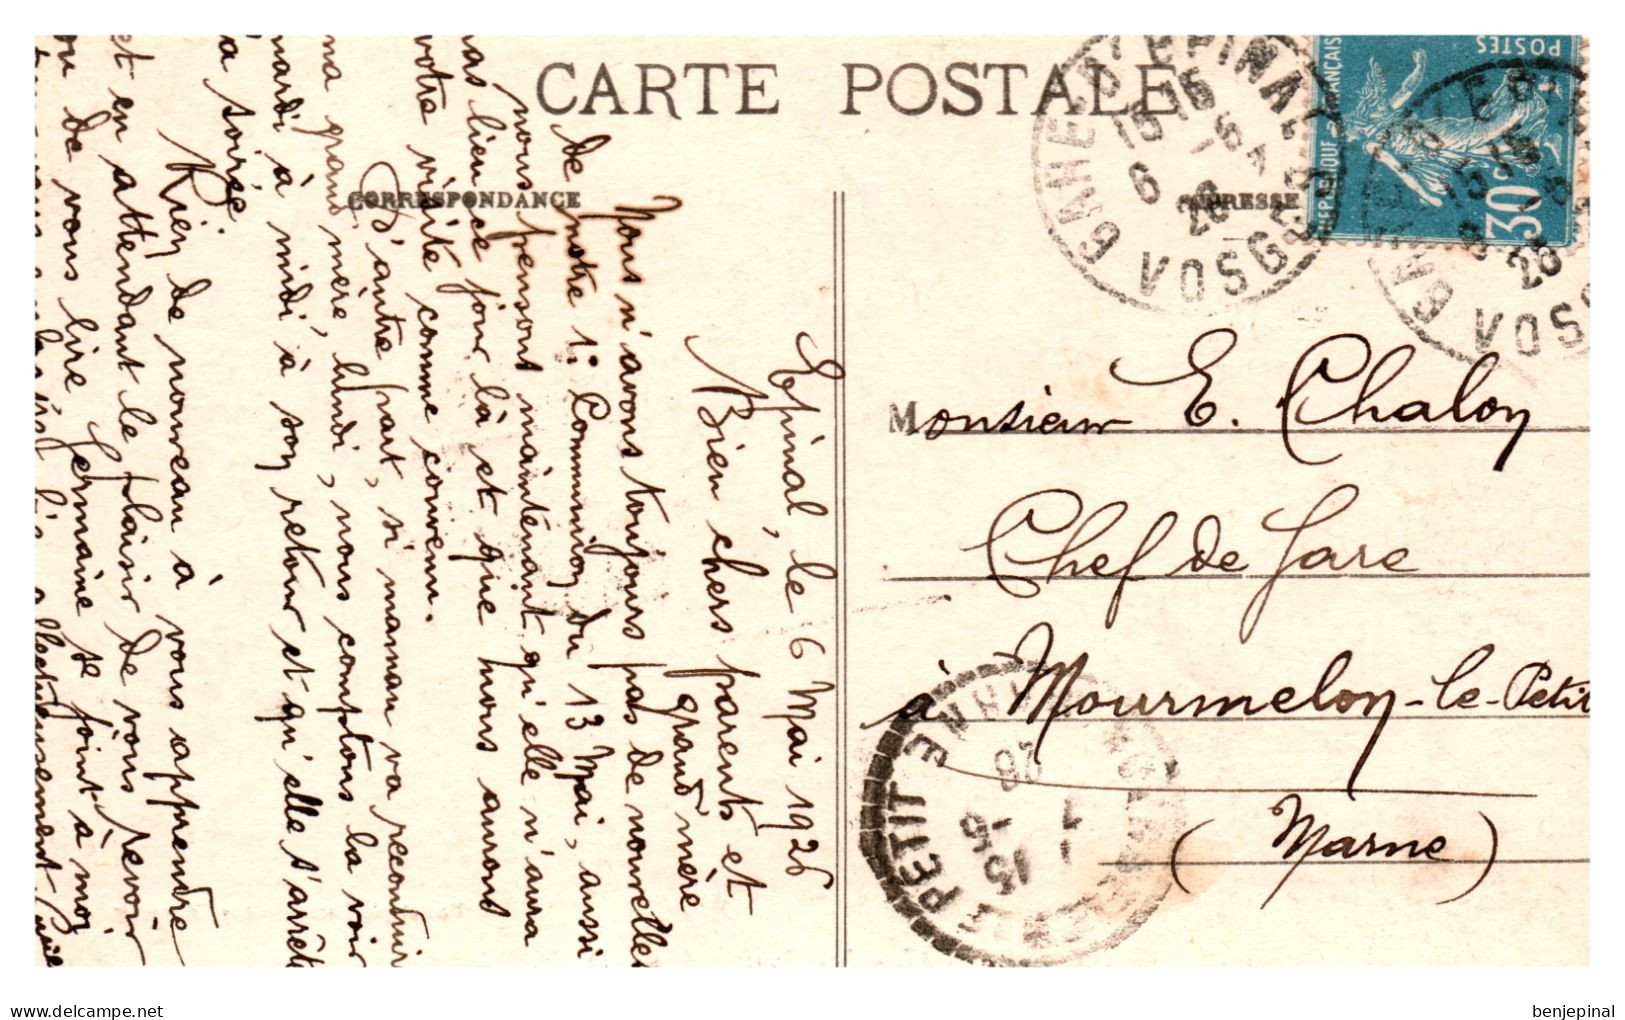 CARTE POSTALE
CORRESPONDANCE
ADRESSE
Epinal, le 6 Mai 1926
Bien chers parents et
grand mère
Nous n'avons toujours pas de nouvelles
de notre 1: Communion du 13 Mai, aussi
nous pensons maintenant qu'elle n'aura
pas lieu ce jour là et que nous aurons
votre visite comme convenu.
D'autre part, si maman va reconduire
ma grand mère, lundi, nous comptons la voir
mardi à midi à son retour et qu'elle s'arrête
la soirée.
Rien de nouveau à vous apprendre
et en attendant le plaisir de vous revoir
ou de vous lire Germaine se joint à moi
affectueusement.
Monsieur E. Chalon
Chef de Gare
à Mourmelon-le-Petit
(Marne)
REPUBLIQUE FRANÇAISE
POSTES
30c
GARE D'EPINAL
VOSGES
15 15
6 - 5
26
PETIT
MARNE
26
benjepinal